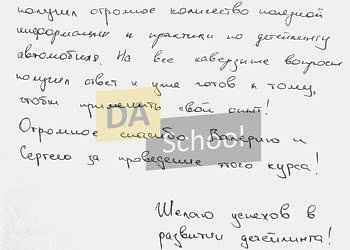 получил огромное количество полезной
информации и практики по детейлингу
автомобиля. На все каверзные вопросы
получил ответ и уже готов к тому,
чтобы применить свой опыт!
Огромное спасибо Валерию и
Сергею за проведение этого курса!
DA
School
Желаю успехов в
развитии детейлинга!